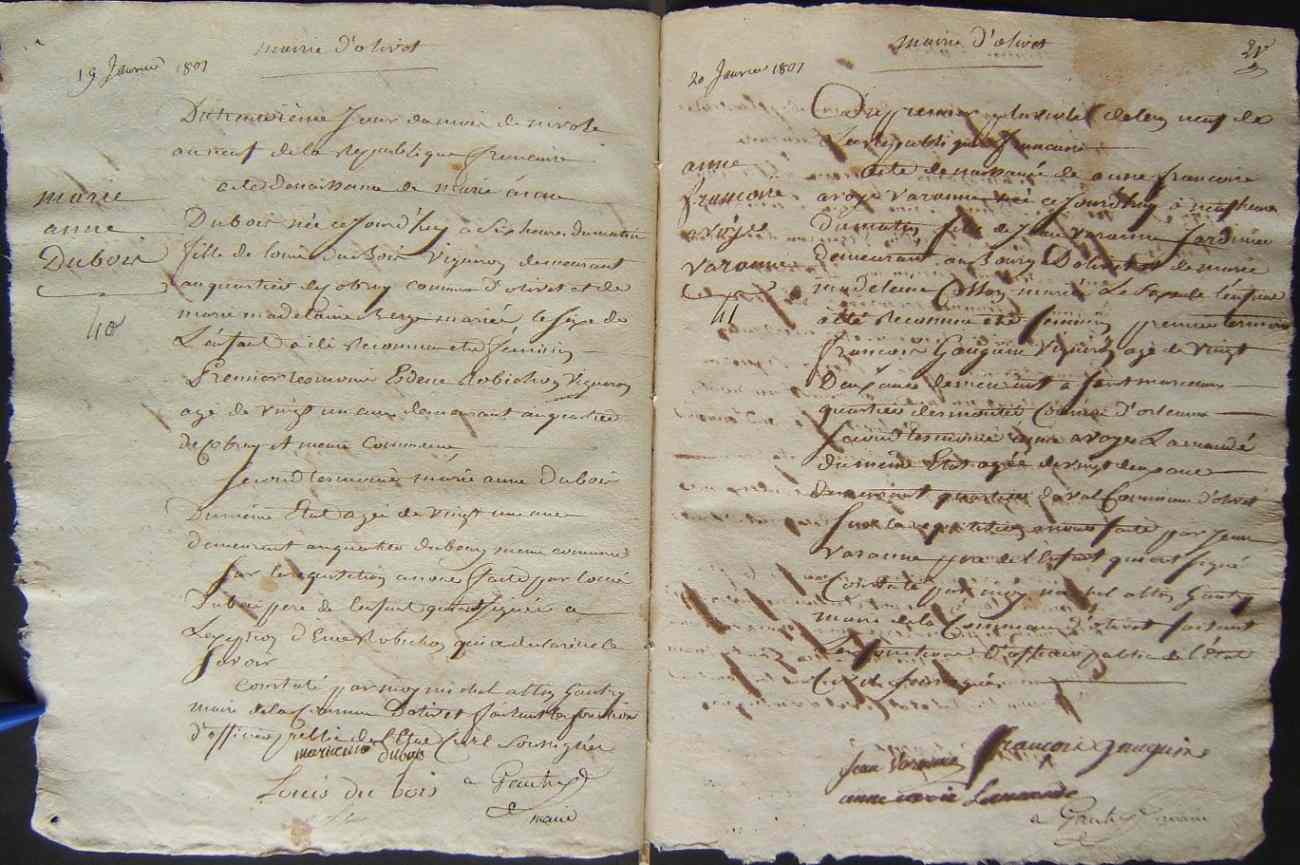 mairie d'olivet
19 Janvier 1801
Du jour du mois de nivose
an neuf de la Republique francaise
acte de naissance de marie anne
marie
anne
Dubois
40
Dubois née cejourd'huy à six heures du matin
fille de louis Dubois Vigneron demeurant
au quartier de commune d'olivet et de
marie madelaine mariés le sexe de
L'enfant a été Reconnu etre féminin
Premier temoin Robichon Vigneron
agé de vingt un ans demeurant au quartier
de meme commune
second temoin marie anne Dubois
Du meme Etat agée de vingt un ans
demeurant au quartier du bourg meme commune
sur la requisition a nous faite par louis
Dubois pere de l'enfant qui a signé a
L'exception d' Robichon qui a declaré ne le
savoir
constaté par moy michel Gautry
maire de la Commune D'olivet faisant la fonction
d'officier public de l'Etat Civil soussigné
marie anne dubois
Louis du bois a Gautry
maire
mairie d'olivet
21
20 Janvier 1801
Du premier pluviose de l'an neuf de
La Republique francaise
acte de naissance de anne francoise
anne
francoise
avoye
varanne
41
avoye varanne née cejourd'huy à neuf heures
du matin fille de Jean varanne Jardinier
demeurant au bourg D'olivet et de marie
madeleine mariés Le sexe de l'enfant
a été Reconnu etre féminin premier temoin
francois Gauguin vigneron agé de vingt
Deux ans demeurant à saint marceau
quartier des montées Commune d'orleans
second temoin anne avoye Lamande
du meme Etat agée de vingt deux ans
demeurant quartier du val Commune d'olivet
sur la requisition a nous faite par jean
varanne pere de l'enfant qui ont signé
Constaté par moy michel Gautry
maire de la Commune d'olivet faisant
les fonctions D'officier public de l'état
Civil soussigné
francois gauguin
jean varanne
anne Lamande
a Gautry maire